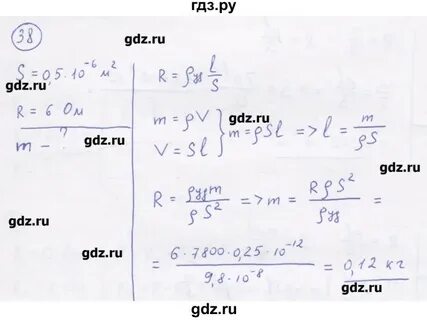 гдз.ру
38
gdz.ru
S = 0,5·10⁻⁶ м²
gdz.ru
R = 6 Ом
gdz.ru
m – ?
gdz.ru
R = ρуд l/S
gdz.ru
m = ρV
V = Sl
} m = ρSl => l = m/ρS
gdz.ru
gdz.ru
R = ρуд m/ρS² => m = RρS²/ρуд =
gdz.ru
gdz.ru
= 6·7800·0,25·10⁻¹²/9,8·10⁻⁸ = 0,12 кг
gdz.ru
gdz.ru
gdz.ru
gdz.ru